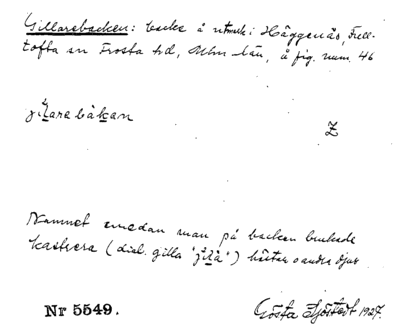 Gillarebacken: backe å utmark i Häggenäs, Full-
tofta sn Frosta hd, Mlm län, å fig. num 46
Z
Namnet emedan man på backen brukade
kastrera (dial. gilla ) hästar o andra djur
Nr 5549.
Gösta Sjöstedt 1927.